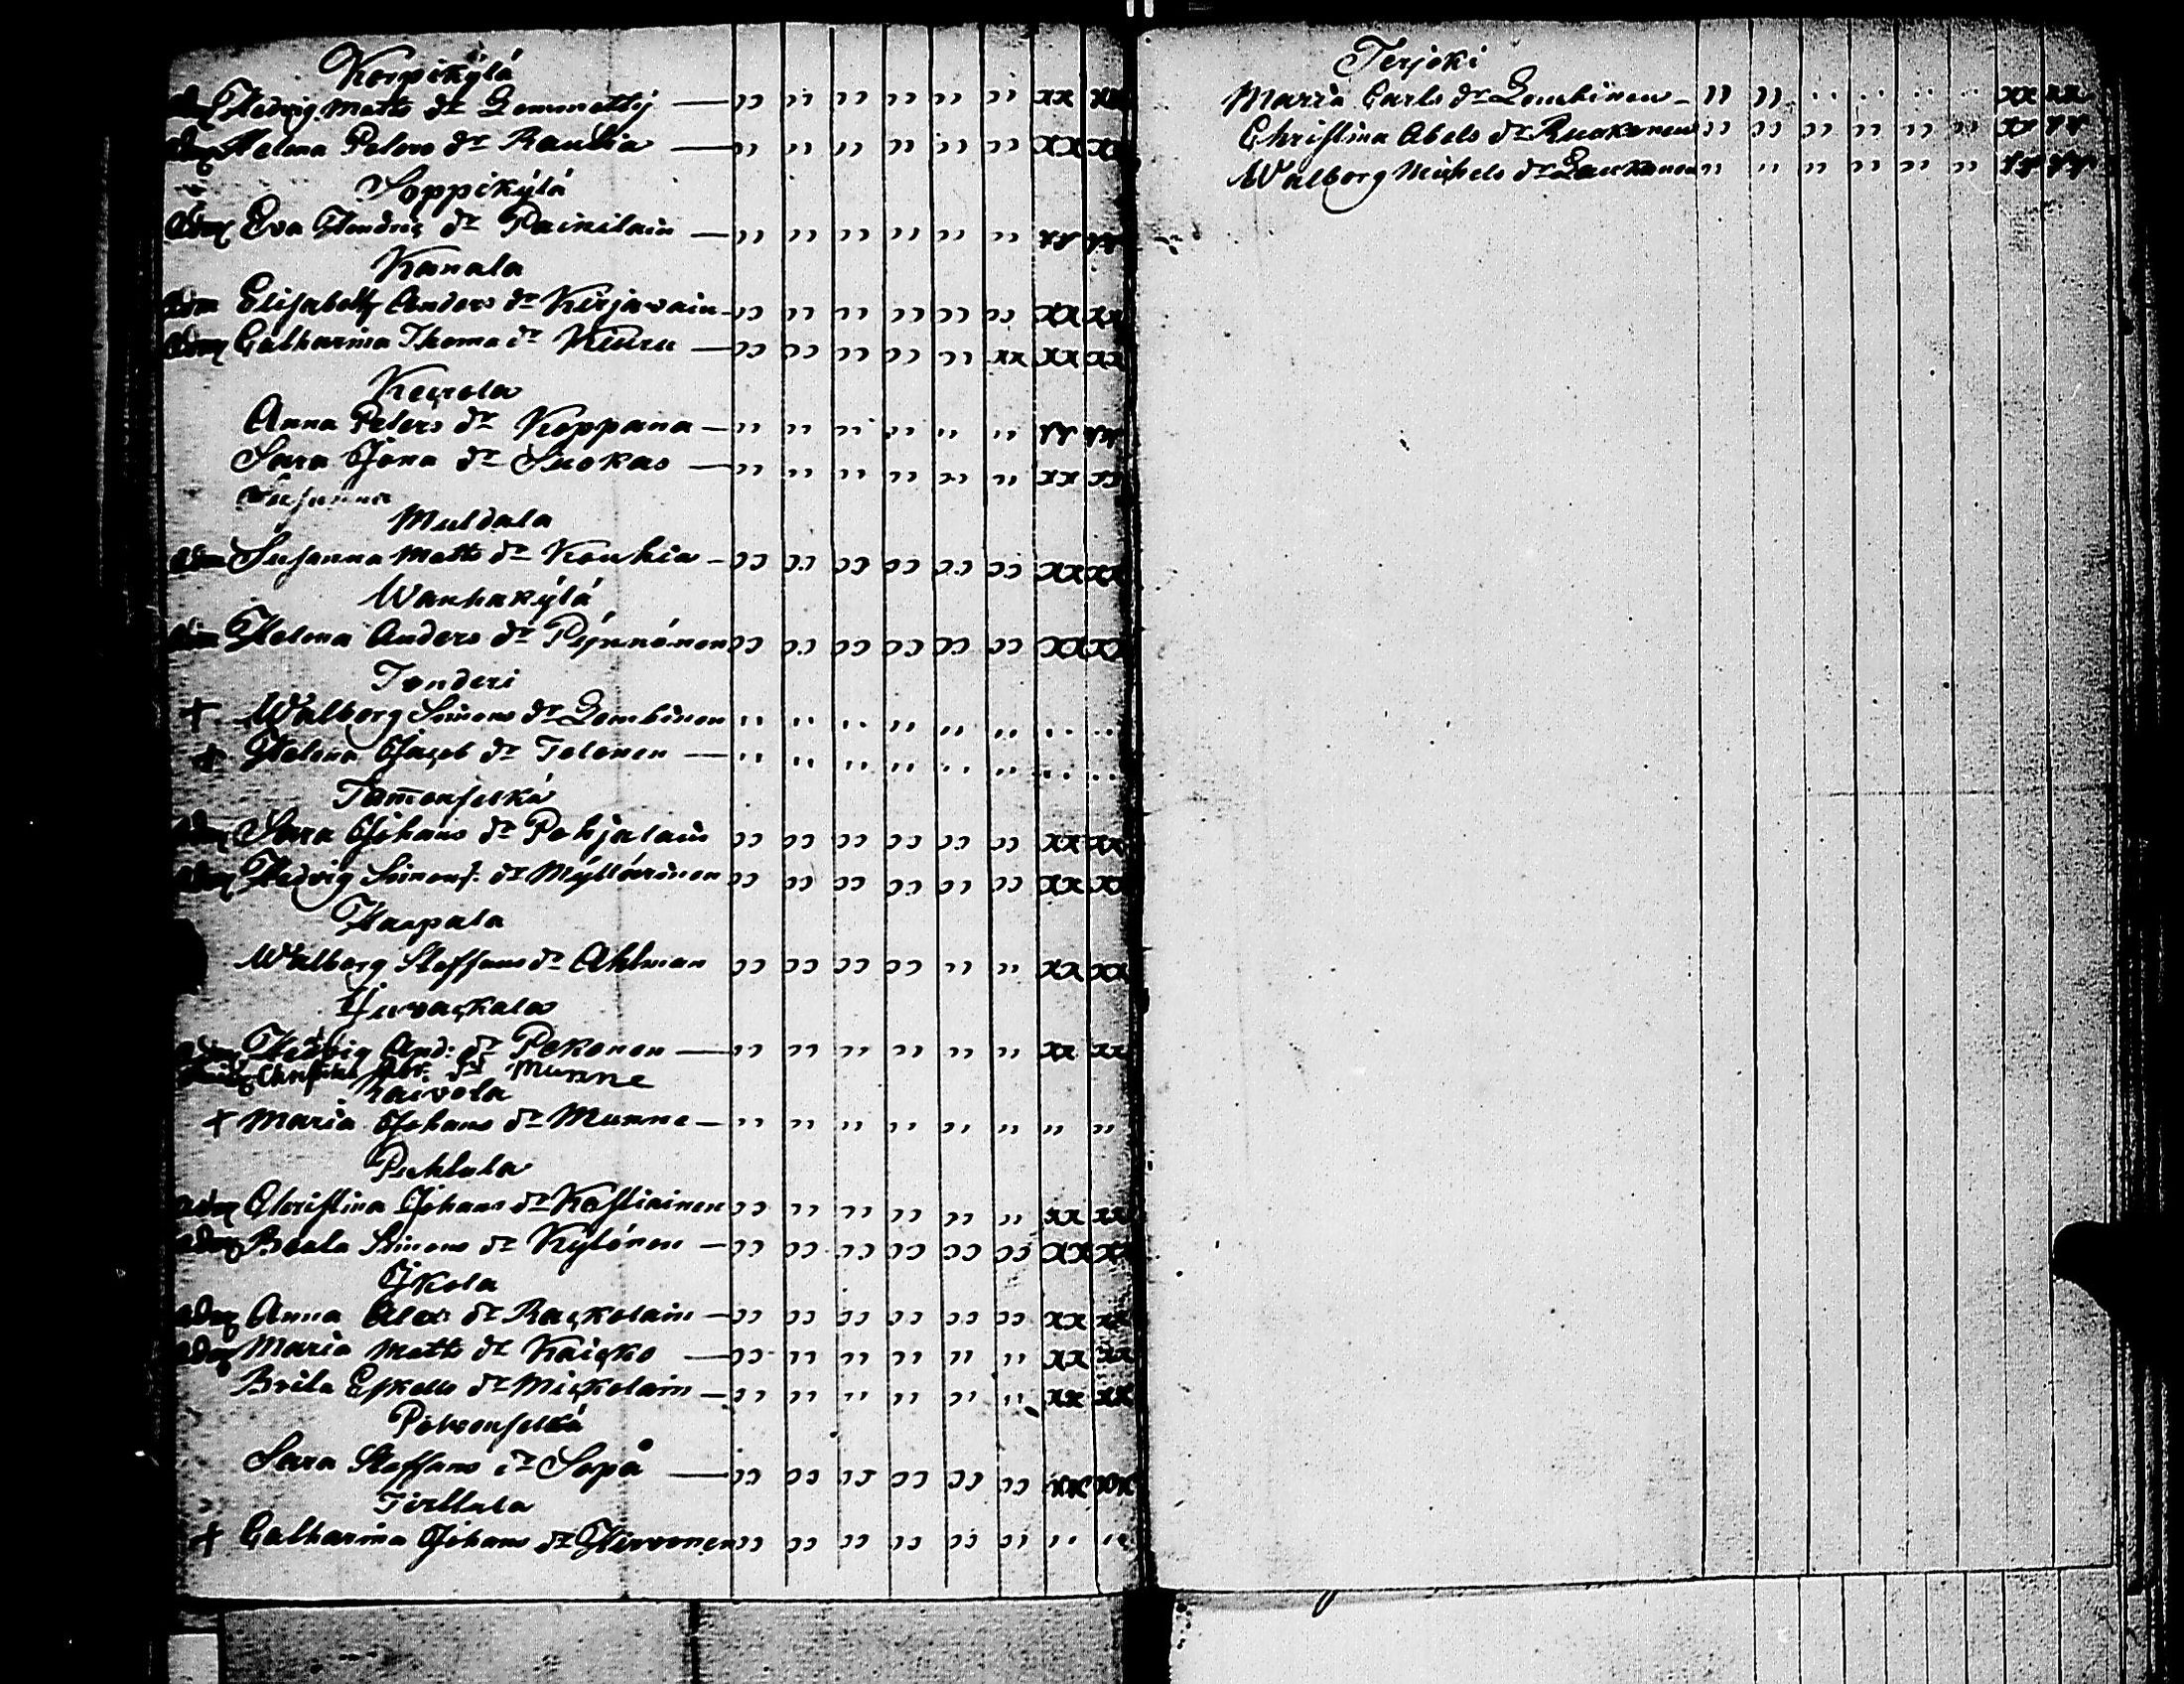 Korpikylä
adm Hedvig Matts dr Lommetty — ,, ,, ,, ,, ,, ,, xx xx
adm Helena Peters dr Rautia — ,, ,, ,, ,, ,, ,, xx xx
Soppikylä
adm Eva Hendric dr Painilain — ,, ,, ,, ,, ,, ,, xx xx
Kanala
adm Elisabeth Anders dr Kirjavain - ,, ,, ,, ,, ,, ,, xx xx
adm Catharina Thoma dr Kiuru — ,, ,, ,, ,, ,, xx xx xx
Keckola
Anna Peters dr Koppana — ,, ,, ,, ,, ,, ,, xx xx
Sara Jona dr Suokas — ,, ,, ,, ,, ,, ,, xx xx
Susanna
Muldala
adm Susanna Matts dr Koukia - ,, ,, ,, ,, ,, ,, xx xx
Wanhakylä
adm Helena Anders dr Pynnönen ,, ,, ,, ,, ,, ,, xx xx
Tonderi
+ Walborg Simons dr Lembinen ,, ,, ,, ,, ,, ,, ,, ,,
+ Helena Jacob dr Tolonen — ,, ,, ,, ,, ,, ,, ,, ,,
Tam̅onselkä
adm Sara Johans dr Pohjalain ,, ,, ,, ,, ,, ,, xx xx
adm Hedvig Simons. dr Myllärinen ,, ,, ,, ,, ,, ,, xx xx
Haapala
Walborg Staffans dr Ahlman ,, ,, ,, ,, ,, ,, xx xx
adm Hedvig And: dr Pokonen — ,, ,, ,, ,, ,, ,, xx xx
Christina dr Munne
Raivola
+ Maria Johans dr Munne — ,, ,, ,, ,, ,, ,, ,, ,,
Puhtula
adm Christina Johans dr Kostiainen ,, ,, ,, ,, ,, ,, xx xx
adm Beata Simons dr Kylönen — ,, ,, ,, ,, ,, ,, xx xx
Ikola
adm Anna Alex: dr Rackolain — ,, ,, ,, ,, ,, ,, xx xx
adm Maria Matts dr Kaicko — ,, ,, ,, ,, ,, ,, xx xx
Brita Eskells dr Mickolain — ,, ,, ,, ,, ,, ,, xx xx
Sara Staffans dr Sopå — ,, ,, ,, ,, ,, ,, xx xx
Tirttula
+ Catharina Johans dr Hirvonen ,, ,, ,, ,, ,, ,, ,, ,,
Terjoki
Maria Carls dr Lembinen - ,, ,, ,, ,, ,, ,, xx xx
Christina Abels dr Ruokonen ,, ,, ,, ,, ,, ,, xx xx
Walborg Michels dr Laukanen ,, ,, ,, ,, ,, ,, xx xx